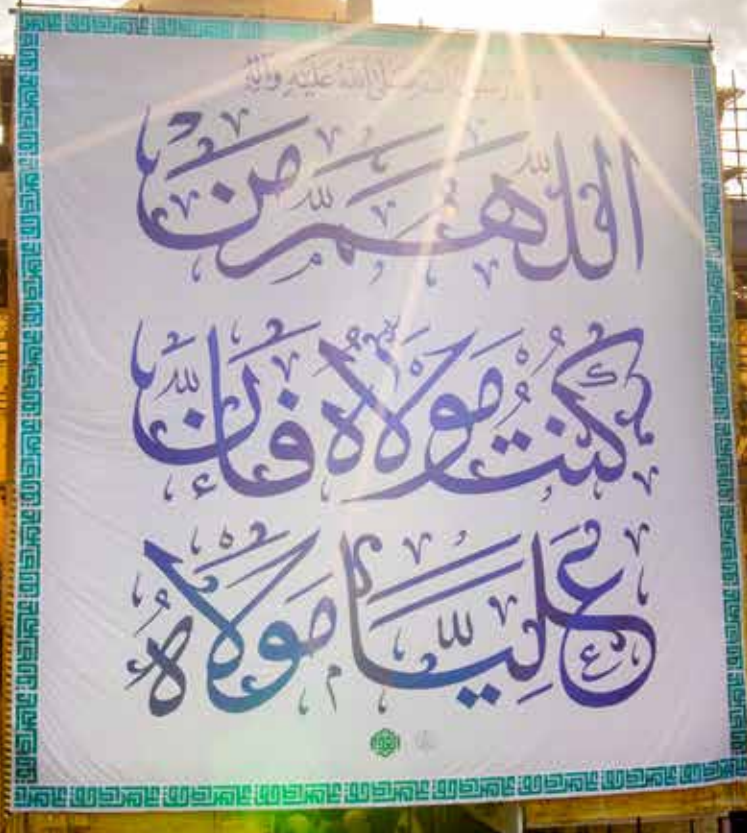 قال رسول الله صلى الله عليه وآله
اللّٰهُمَّ مَنْ
كُنْتُ مَوْلَاهُ فَإِنَّ
عَلِيًّا مَوْلَاهُ